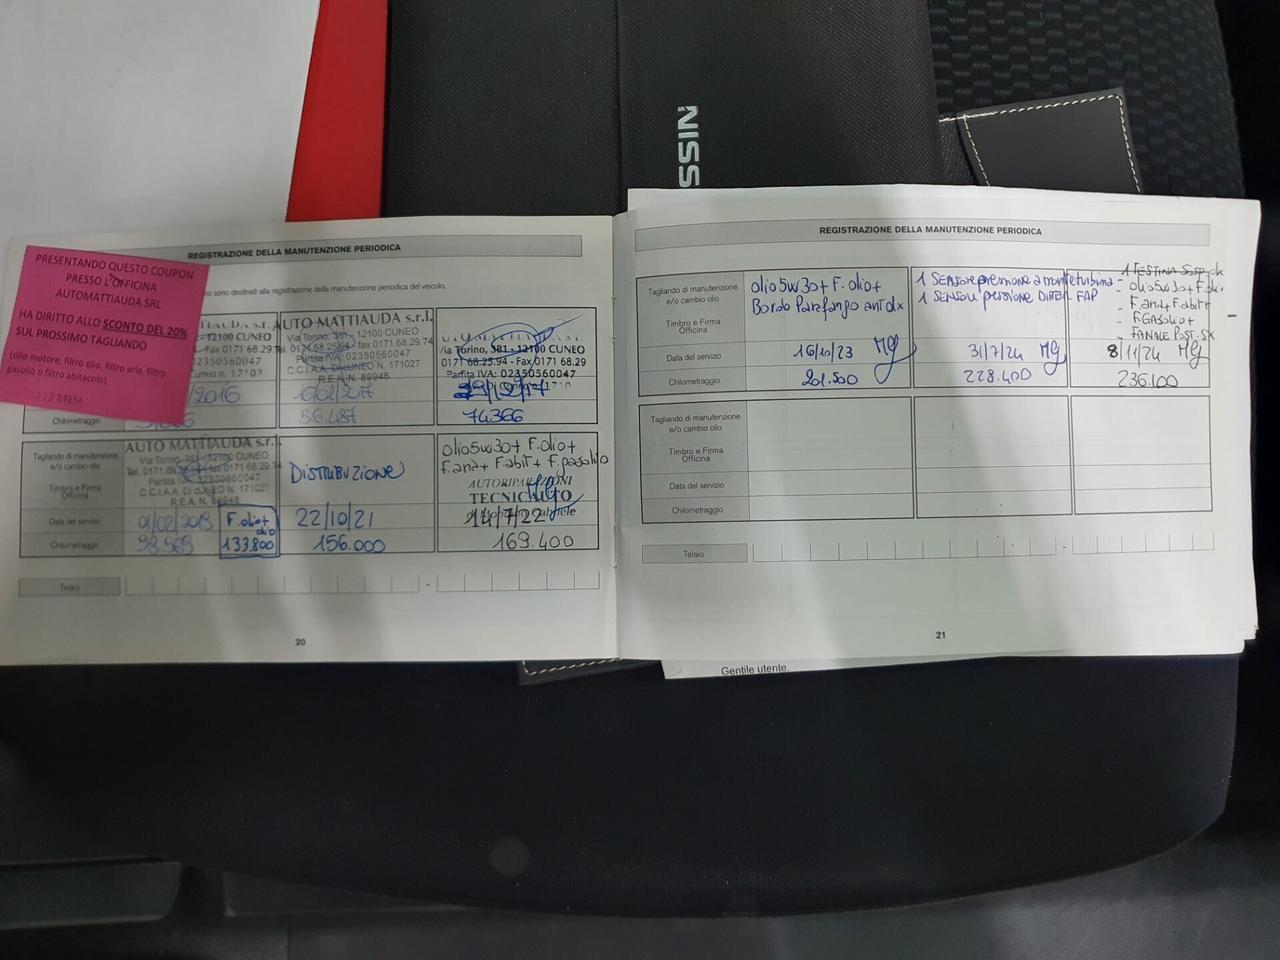 NISS
REGISTRAZIONE DELLA MANUTENZIONE PERIODICA
no sono destinati alla registrazione della manutenzione periodica del veicolo.
PRESENTANDO QUESTO COUPON
PRESSO L'OFFICINA
AUTOMATTIAUDA SRL
HA DIRITTO ALLO SCONTO DEL 20%
SUL PROSSIMO TAGLIANDO
(olio motore, filtro olio, filtro aria, filtro
gasolio o filtro abitacolo)
12 MESI
- 12100 CUNEO
Fax 0171 68.29
02350560047
/2016
Chilometraggio
AUTO MATTIAUDA s.r.l.
Via Torino, 381 - 12100 CUNEO
Tel. 0171 68.25.94 - Fax 0171 68.29.74
Partita IVA: 02350560047
C.C.I.A.A. DI CUNEO N. 171027
R.E.A. N. 89946
16/02/2017
56.487
Via Torino, 381 - 12100 CUNEO
0171 68.25.94 - Fax 0171 68.29
Partita IVA: 02350560047
74366
Tagliando di manutenzione
e/o cambio olio
Timbro e Firma
Officina
Data del servizio
Chilometraggio
AUTO MATTIAUDA s.r.l.
Via Torino, 381 - 12100 CUNEO
Partita IVA: 02350560047
C.C.I.A.A. DI CUNEO N. 171027
R.E.A. N. 89946
01/02/2019
98.969
F.olio+
olio
133.800
DISTRIBUZIONE
22/10/21
156.000
olio5w30+ F.olio+
F.aria+ F.abit+ F.gasolio
AUTORIPARAZIONI
TECNICAUTO
14/7/22
169.400
Telaio
20
REGISTRAZIONE DELLA MANUTENZIONE PERIODICA
Tagliando di manutenzione
e/o cambio olio
Timbro e Firma
Officina
Data del servizio
Chilometraggio
olio5w30+ F.olio+
Bordo Parafango ant dx
16/10/23 MG
201.500
1 SENSORE pressione a monte turbina
1 SENSORE pressione DIFFER. FAP
31/7/24 MG
228.400
1 TESTINA Sosp. dx
- olio5w30+ F.olio
- F.aria+ F.abit+
- F.GASOLIO+
- FANALE POST. SX
8/11/24 MG
236.100
Tagliando di manutenzione
e/o cambio olio
Timbro e Firma
Officina
Data del servizio
Chilometraggio
Telaio
21
Gentile utente,